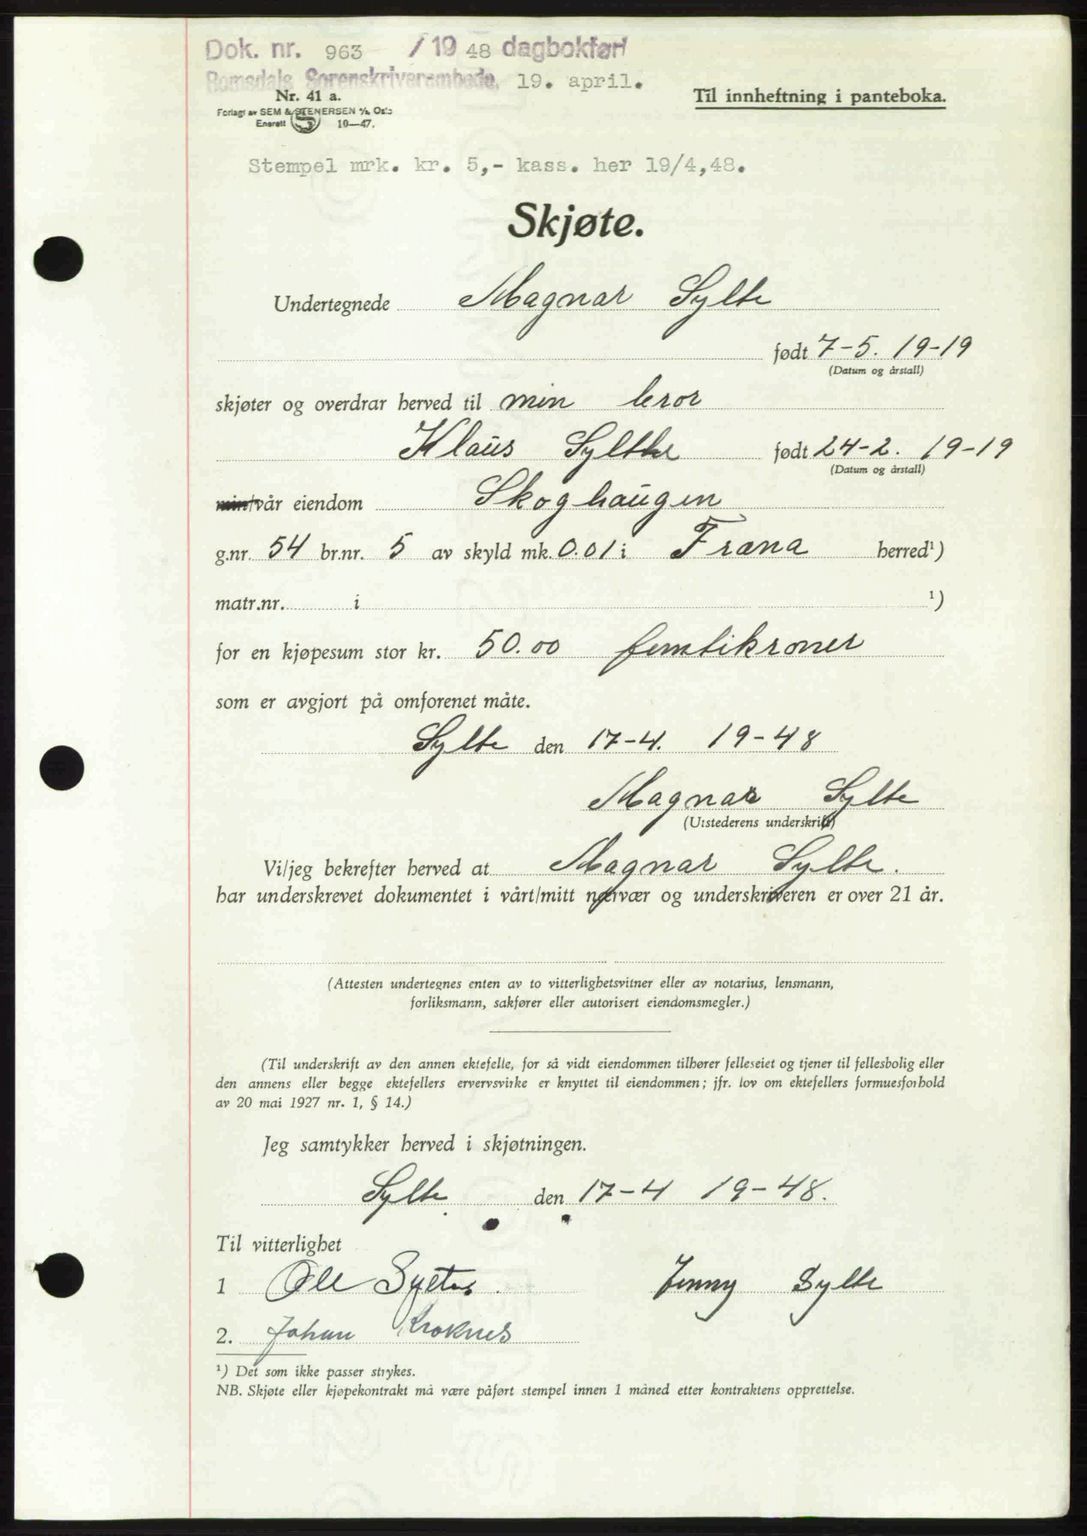 Dok. nr. 963 / 19 48 dagbokført
Romsdals Sorenskriverembede, 19. april.
Nr. 41 a.
Forlagt av SEM & STENERSEN A/S, Oslo
Enerett 10—47.
Til innheftning i panteboka.
Stempel mrk. kr. 5,- kass. her 19/4,48.
Skjøte.
Undertegnede Magnar Sylte
født 7-5. 19-19
(Datum og årstall)
skjøter og overdrar herved til min bror
Klaus Sylte født 24-2. 19-19
(Datum og årstall)
min/vår eiendom Skoghaugen
g.nr. 54 br.nr. 5 av skyld mk. 0.01 i Fræna herred¹)
matr.nr. i ¹)
for en kjøpesum stor kr. 50.00 femtikroner
som er avgjort på omforenet måte.
Sylte den 17-4. 19-48
Magnar Sylte
(Utstederens underskrift)
Vi/jeg bekrefter herved at Magnar Sylte.
har underskrevet dokumentet i vårt/mitt nærvær og underskriveren er over 21 år.
(Attesten undertegnes enten av to vitterlighetsvitner eller av notarius, lensmann,
forliksmann, sakfører eller autorisert eiendomsmegler.)
(Til underskrift av den annen ektefelle, for så vidt eiendommen tilhører felleseiet og tjener til fellesbolig eller
den annens eller begge ektefellers ervervsvirke er knyttet til eiendommen; jfr. lov om ektefellers formuesforhold
av 20 mai 1927 nr. 1, § 14.)
Jeg samtykker herved i skjøtningen.
Sylte den 17-4 19-48.
Til vitterlighet
1 Ole Syltes. Jenny Sylte
2. Johan Kroknes
¹) Det som ikke passer strykes.
NB. Skjøte eller kjøpekontrakt må være påført stempel innen 1 måned etter kontraktens opprettelse.